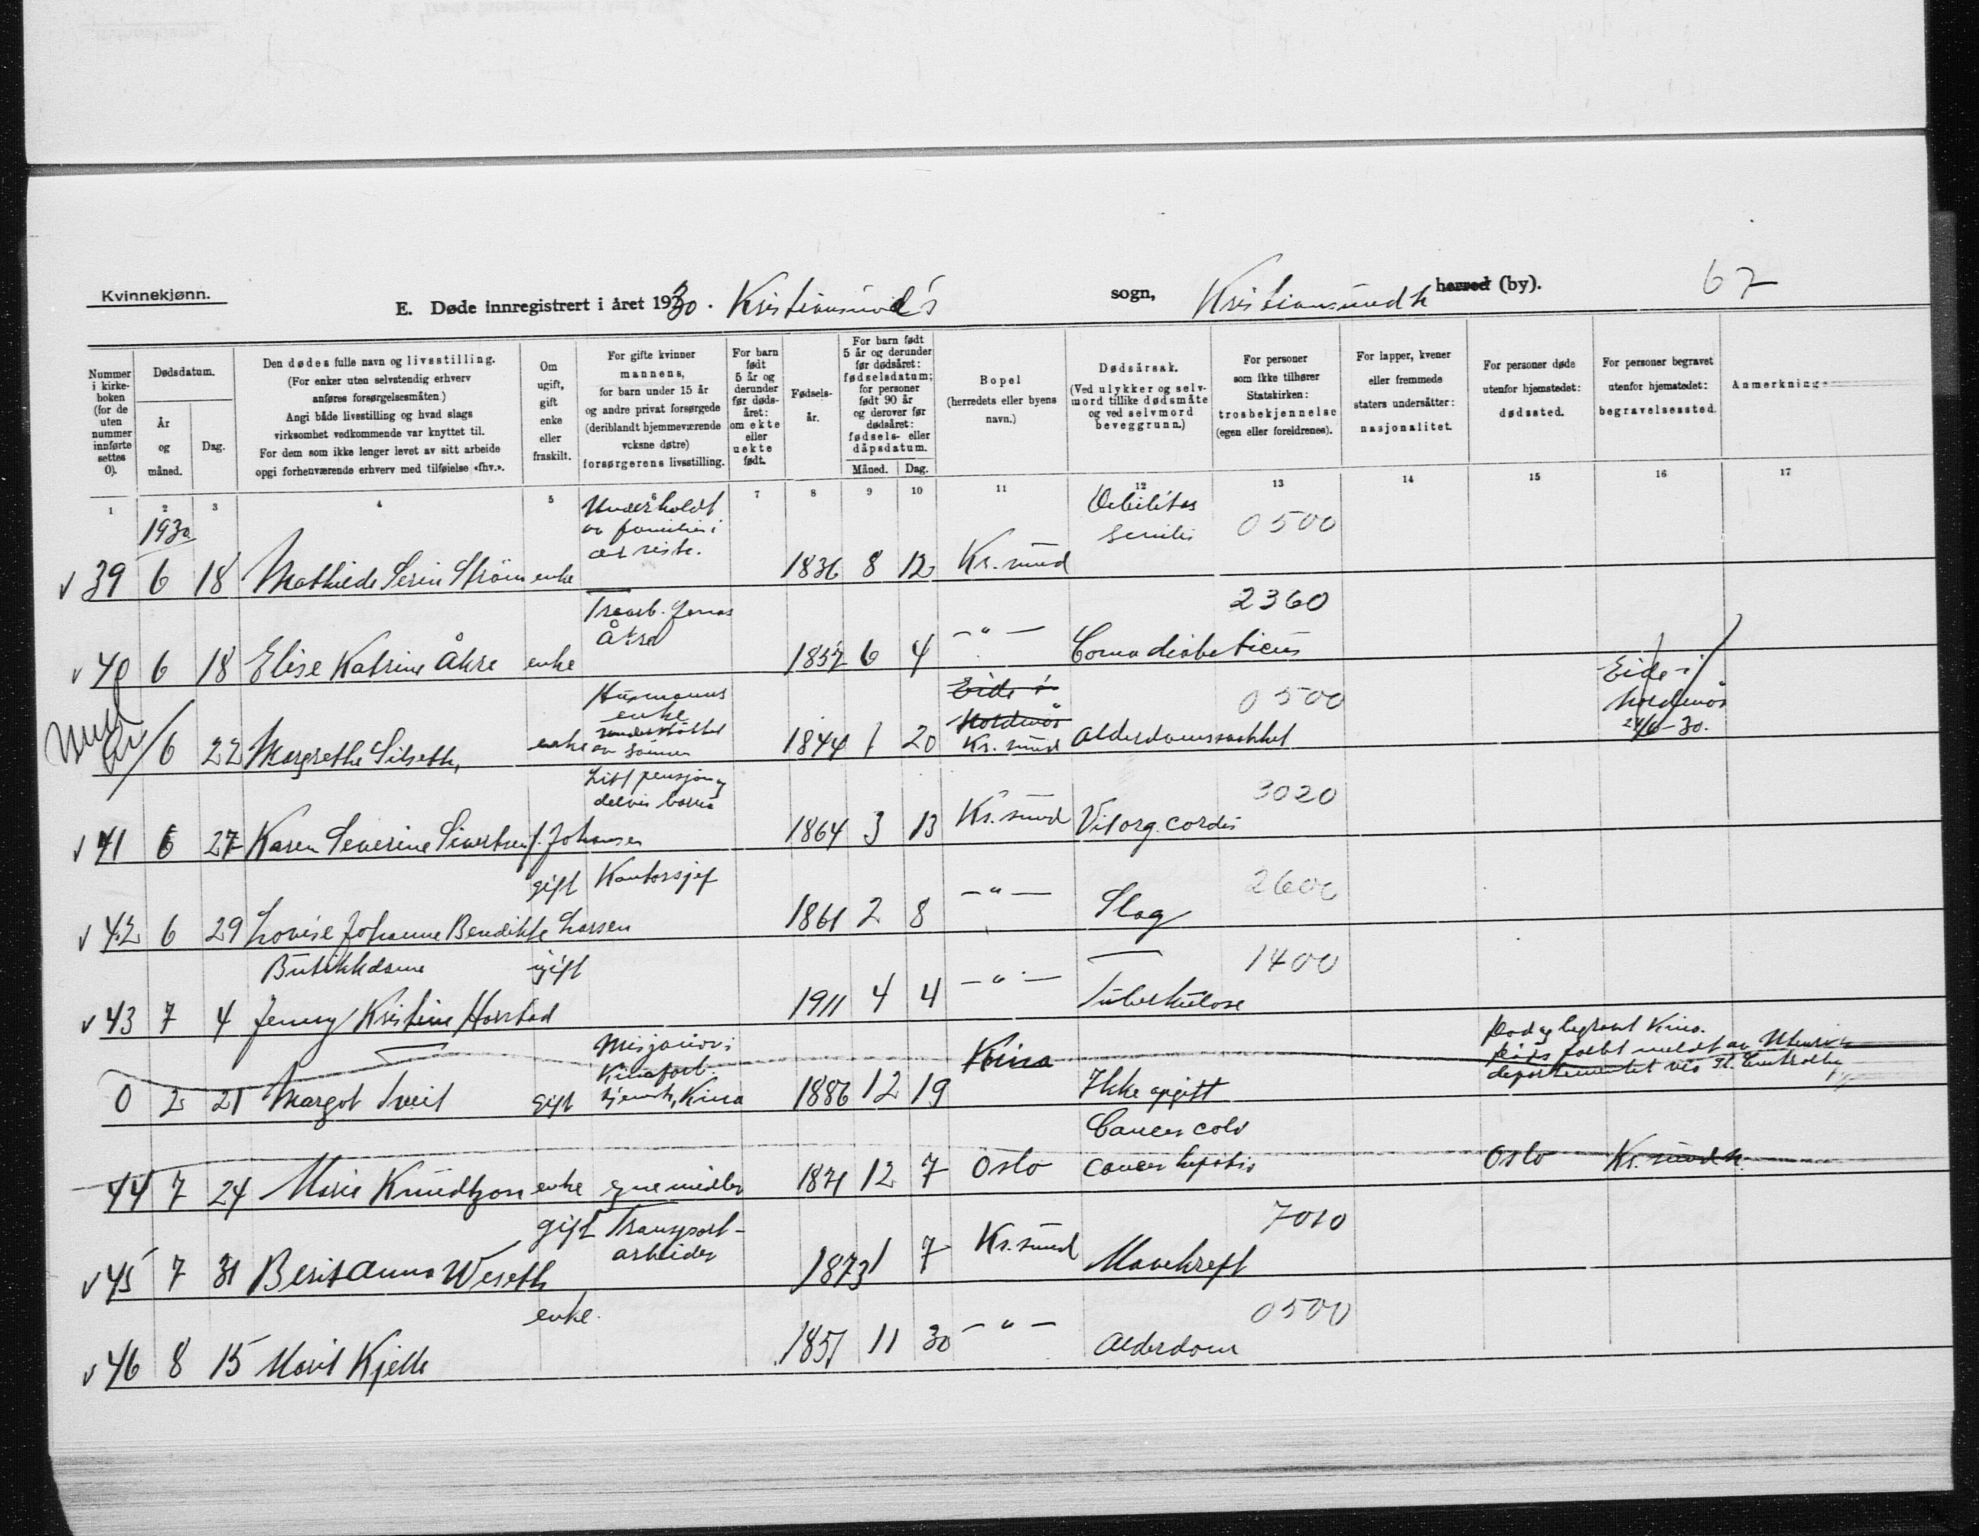 Kvinnekjønn.
E. Døde innregistrert i året 1930. Kristiansund's sogn, Kristiansund N herred (by). 67
Nummer i kirkeboken (for de uten nummer innførte settes 0).
Dødsdatum.
År og måned.
Dag.
Den dødes fulle navn og livsstilling.
(For enker uten selvstendig erhverv anføres forsørgelsesmåten.)
Angi både livsstilling og hvad slags virksomhet vedkommende var knyttet til.
For dem som ikke lenger levet av sitt arbeide opgi forhenværende erhverv med tilføielse «fhv.».
Om ugift, gift enke eller fraskilt.
For gifte kvinner mannens, for barn under 15 år og andre privat forsørgede (deriblandt hjemmeværende voksne døtre) forsørgerens livsstilling.
For barn født 5 år og derunder før dødsåret: om ekte eller uekte født.
Fødselsår.
For barn født 5 år og derunder før dødsåret: fødselsdatum; for personer født 90 år og derover før dødsåret: fødsels- eller dåpsdatum.
Måned. Dag.
Bopel (herredets eller byens navn.)
Dødsårsak. (Ved ulykker og selvmord tillike dødsmåte og ved selvmord beveggrunn.)
For personer som ikke tilhører Statskirken: trosbekjennelse (egen eller foreldrenes).
For lapper, kvener eller fremmede staters undersåtter: nasjonalitet.
For personer døde utenfor hjemstedet: dødssted.
For personer begravet utenfor hjemstedet: begravelsessted.
Anmerkning
1 2 3 4 5 7 8 9 10 11 12 13 14 15 16 17
1930 Underholdt av familie i Debilitas senilis 0500
v 39 6 18 Mathilde Serin Strøm enke 1836 8 12 Kr.sund
Jonas Åkre 2360
v 40 6 18 Elise Katrine Åkre enke 1857 6 4 -"- Coma diabeticus
Husmanns enke understøttet av sønner Eide i Nordmør 0500 Eide i Nordmør
6 22 Margrethe Silseth, enke 1844 1 20 Kr.sund Alderdomssvakhet 24/6-30.
Litt pensjon og delvis barna 3020
v 41 6 27 Karen Severine Sivertsen f. Johansen 1864 3 13 Kr.sund Vit.org.cordis
gift Kontorsjef 2600
v 42 6 29 Lovise Johanne Bendikte Larsen 1861 2 8 -"- Slag
Butikkdame ugift 1400
v 43 7 4 Jenny Kristine Harstad 1911 4 4 -"- Tuberkulose
Misjonær i Kinaforb. tjeneste, Kina Kina Død og begravet Kina.
0 2 21 Margot Tveit gift 1886 12 19 Ikke opgitt
Cancer coli
44 7 24 Marie Knudtzon enke egne midler 1871 12 7 Oslo cancer hepatis Oslo Kr.sund N.
gift Transportarbeider 7010
v 45 7 31 Berit Anna Weseth 1873 1 7 Kr.sund Mavekreft
enke. 0500
v 46 8 15 Marit Kjelle 1851 11 30 -"- Alderdom